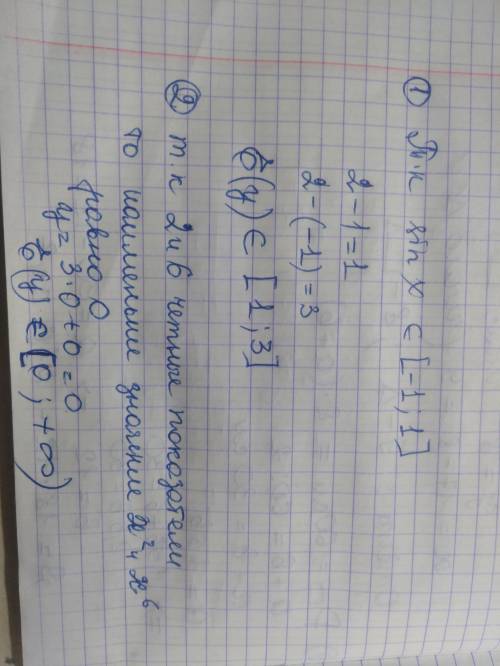 ① Т.к sin x ∈ [-1; 1]
2 - 1 = 1
2 - (-1) = 3
E(y) ∈ [1; 3]
② т.к 2 и 6 четные показатели
то наименьшие значение x² и x⁶
равно 0
y = 3·0 + 0 = 0
E(y) ∈ [0; +∞)